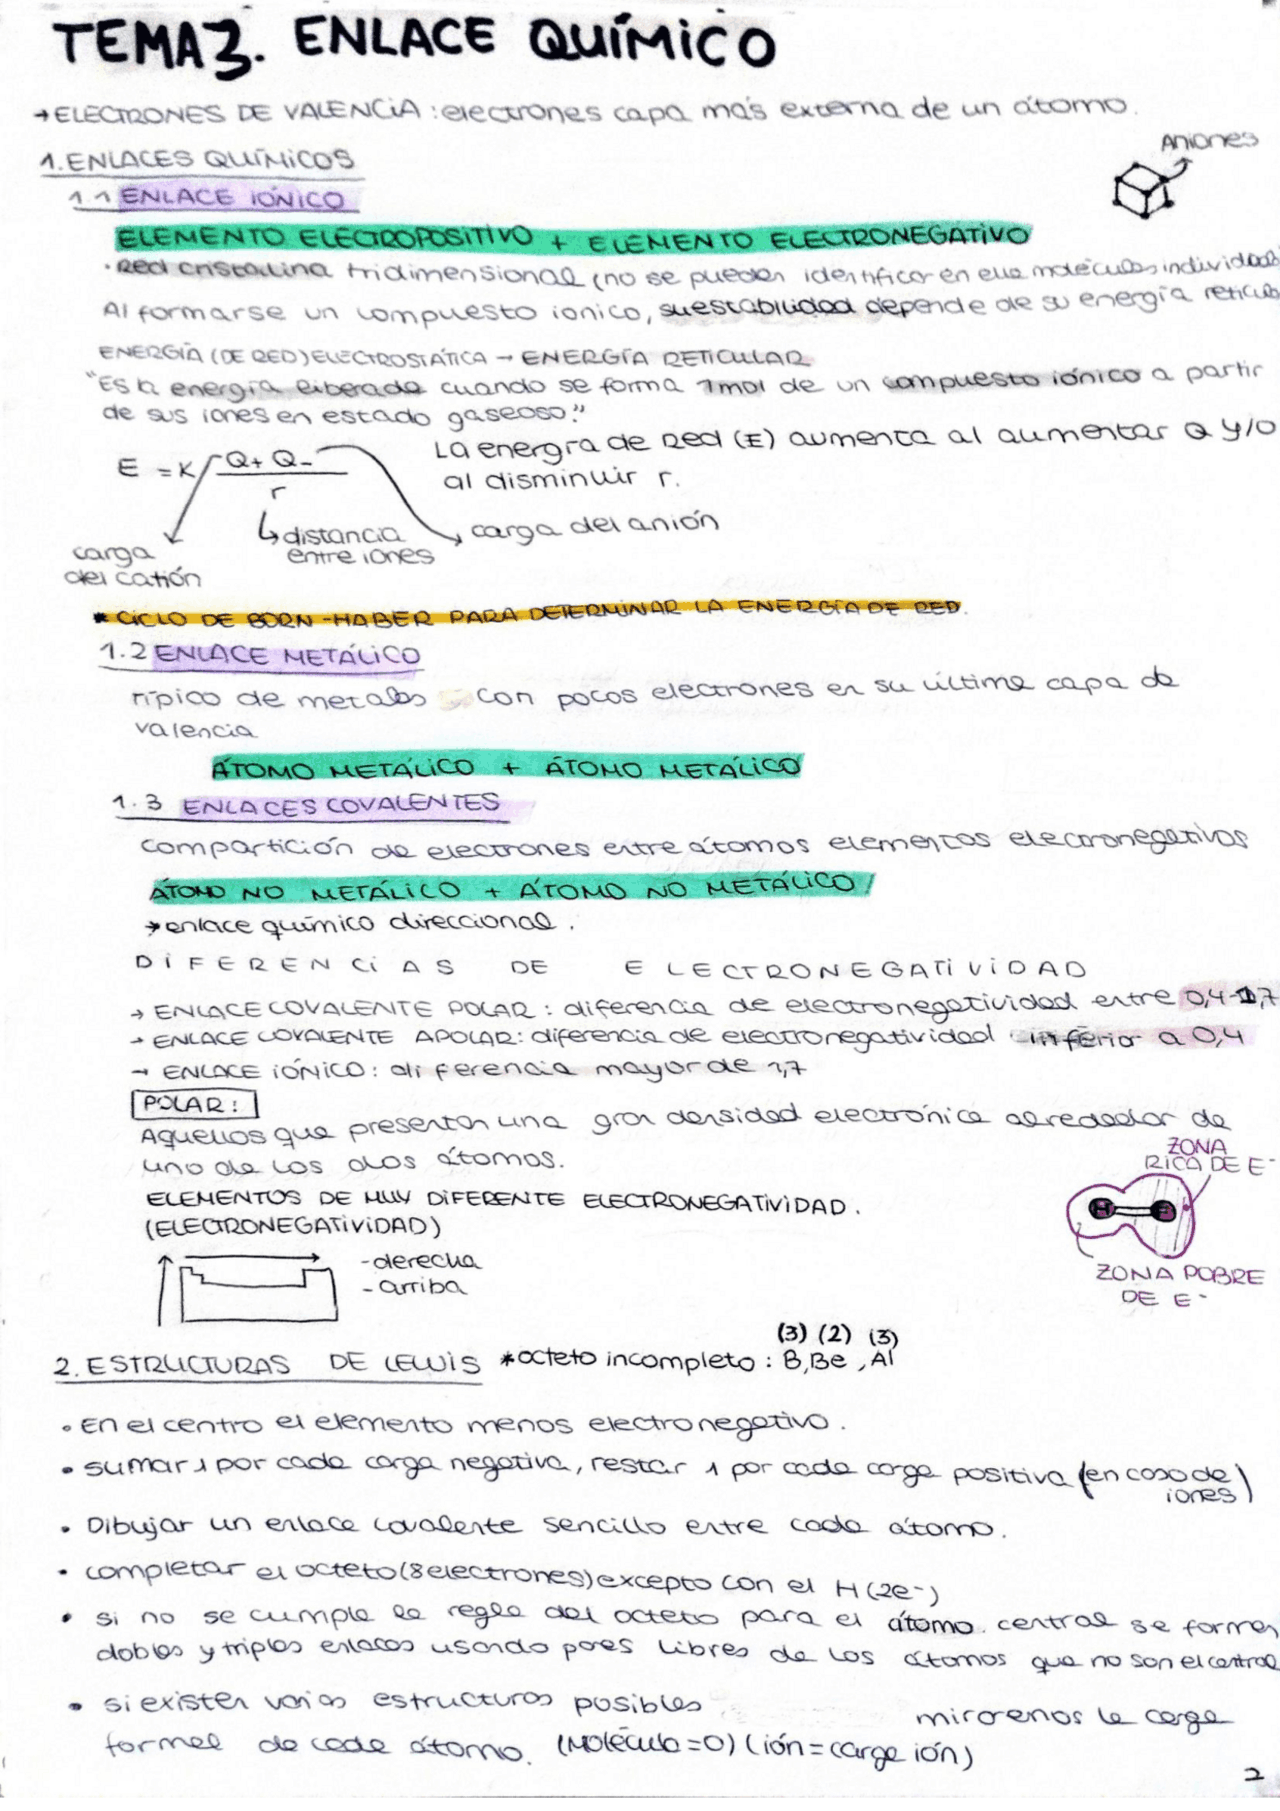 TEMA 3. ENLACE QUÍMICO
→ELECTRONES DE VALENCIA: electrones capa más externa de un átomo.
Aniones
1. ENLACES QUÍMICOS
1.1 ENLACE IÓNICO
ELEMENTO ELECTROPOSITIVO + ELEMENTO ELECTRONEGATIVO
·Red cristalina tridimensional (no se pueden identificar en ella moléculas individuales
Al formarse un compuesto ionico, su estabilidad depende de su energía reticular
ENERGÍA (DE RED) ELECTROSTÁTICA → ENERGÍA RETICULAR
"Es la energía liberada cuando se forma 1mol de un compuesto iónico a partir
de sus iones en estado gaseoso."
La energía de Red (E) aumenta al aumentar Q y/o
al disminuir r.
E = K Q+ Q- / r
carga del anión
distancia
entre iones
carga
del catión
* CICLO DE BORN-HABER PARA DETERMINAR LA ENERGÍA DE RED.
1.2 ENLACE METÁLICO
Típico de metales con pocos electrones en su última capa de
valencia
ÁTOMO METÁLICO + ÁTOMO METÁLICO
1.3 ENLACES COVALENTES
compartición de electrones entre átomos elementos electronegativos
ÁTOMO NO METÁLICO + ÁTOMO NO METÁLICO
→enlace químico direccional.
DIFERENCIAS DE ELECTRONEGATIVIDAD
→ ENLACE COVALENTE POLAR: diferencia de electronegatividad entre 0,4-1,7
→ ENLACE COVALENTE APOLAR: diferencia de electronegatividad inferior a 0,4
→ ENLACE IÓNICO: diferencia mayor de 1,7
POLAR:
Aquellos que presentan una gran densidad electrónica alrededor de
uno de los dos átomos.
ZONA
RICA DE E-
ELEMENTOS DE MUY DIFERENTE ELECTRONEGATIVIDAD.
(ELECTRONEGATIVIDAD)
H
-derecha
-arriba
ZONA POBRE
DE E-
(3) (2) (3)
2. ESTRUCTURAS DE LEWIS *octeto incompleto: B, Be, Al
• En el centro el elemento menos electronegativo.
• sumar 1 por cada carga negativa, restar 1 por cada carga positiva (en caso de
iones)
• Dibujar un enlace covalente sencillo entre cada átomo.
• completar el octeto (8 electrones) excepto con el H (2e-)
• si no se cumple la regla del octeto para el átomo central se forman
dobles y triples enlaces usando pares libres de los átomos que no son el central
• si existen varias estructuras posibles miraremos la carga
formal de cada átomo. (Molécula=0) (ión=carga ión)
2